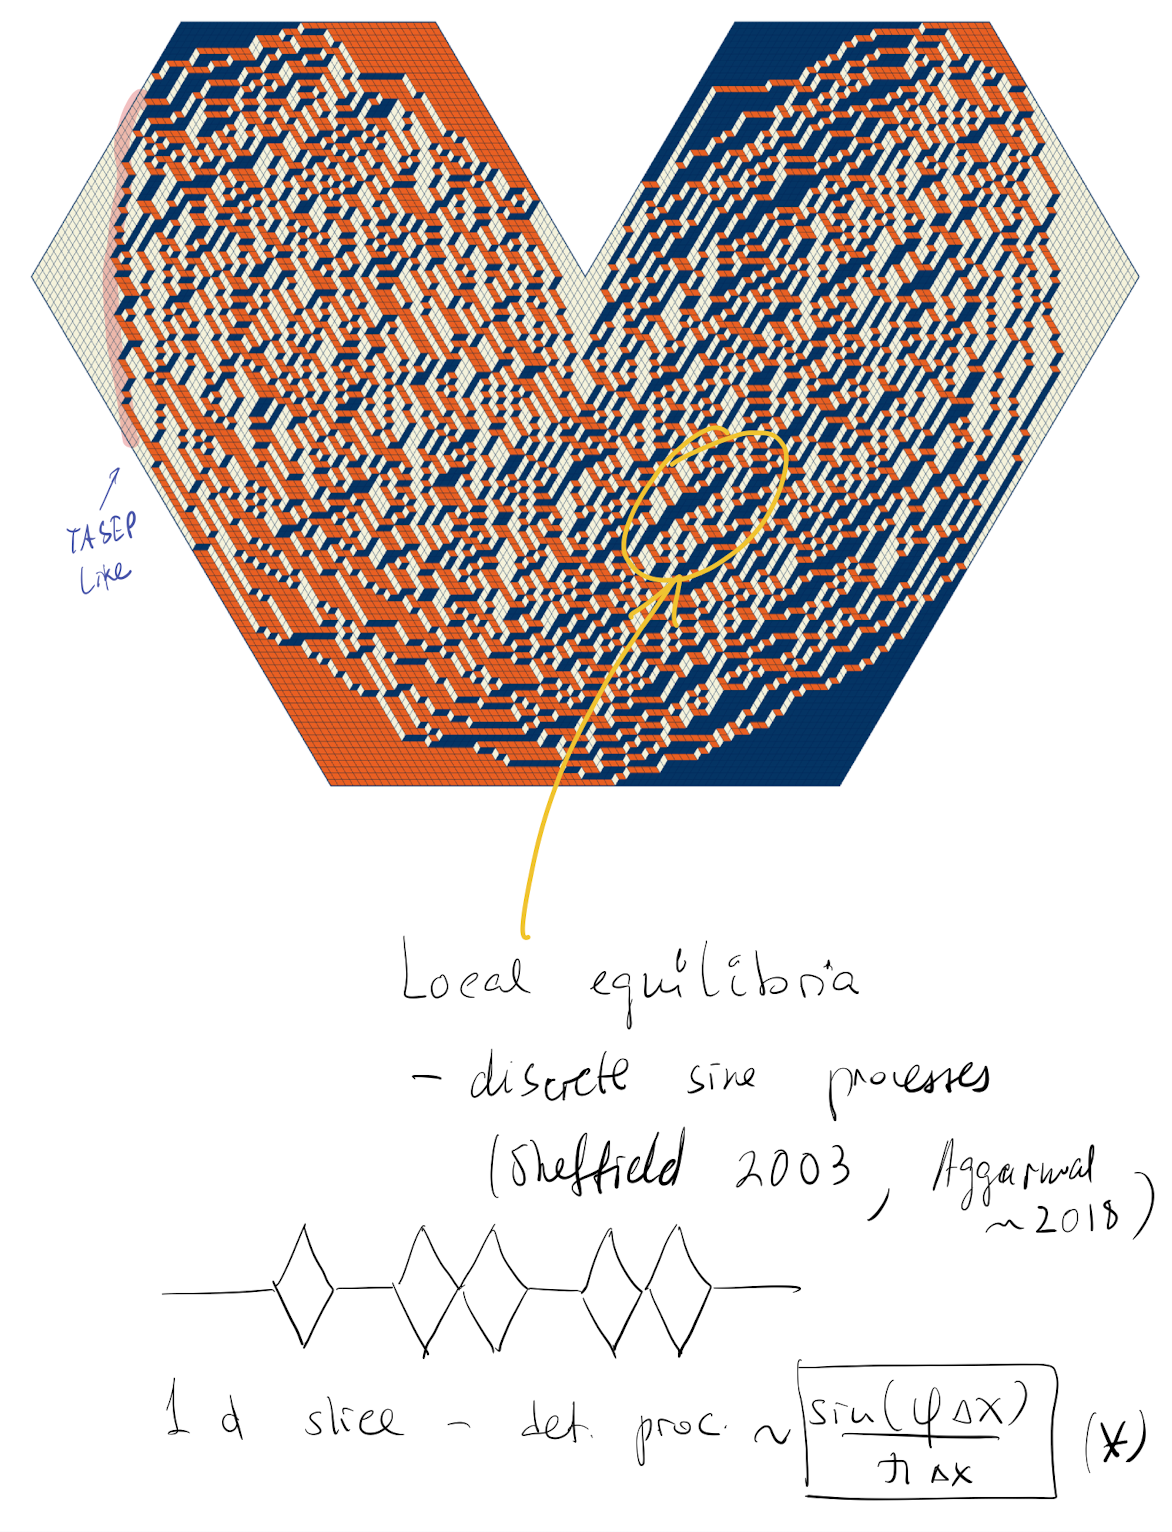 TASEP
Like
Local equilibria
- discrete sine processes
(Sheffield 2003, Aggarwal
~2018)
1 d slice - det. proc. ~ sin(φ Δx) / π Δx (*)